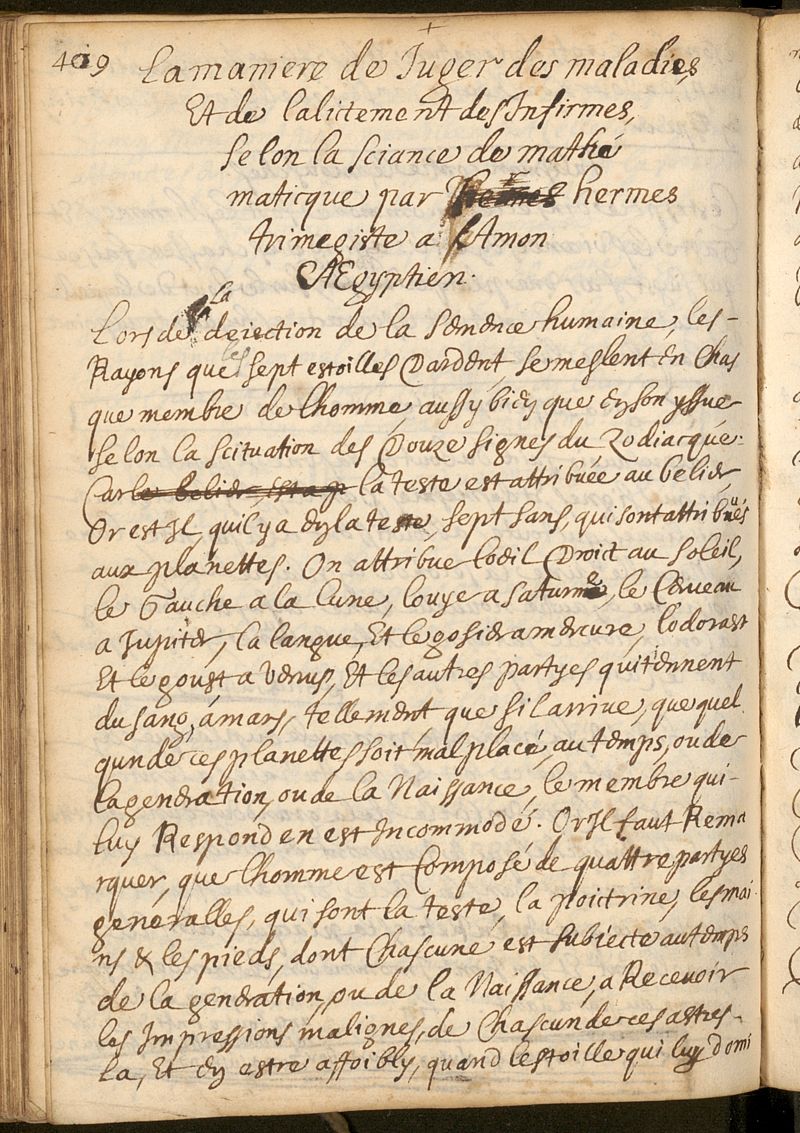 409
La maniere de Juger des maladies
Et de lalictement des Infirmes,
selon la sciance de mathé
maticque par hermes
trimegiste a Amon
AEgyptien.
la
Lors de deiection de la semence humaine, les-
Rayons que les sept estoilles Dardent, se meslent en Chas
que membre de lhomme, aussy bien que en son yssue
selon la scituation des Douze signes du Zodiacque.
Car le belier est ap la teste est attribuée au belier,
Or est Jl, quil y a en la teste, sept sans, qui sont attribués
aux planettes. On attribue loeil Droict au soleil,
le Gauche a la lune, louye a saturne, le Cerueau
a Jupiter, la langue, Et le gosier a mercure, lodorast
Et le goust a venus, Et les autres partyes qui tennent
du sang, a mars, tellement que sil arriue, que quel
qun de ces planettes soit mal placé, au temps, ou de
la generation, ou de la Naissance, le membre qui-
luy Respond en est Incommodé. Or Jl faut Rema
rquer, que lhomme est Composé de quattre partyes
generalles, qui sont la teste, la poictrine, les mai
ns & les pieds, dont Chascune est subiecte au temps
de la generation, ou de la Naissance, a Receuoir
les Impressions malignes, de Chascun de ces astres-
la, Et en estre affoibly, quand lestoille qui luy domi